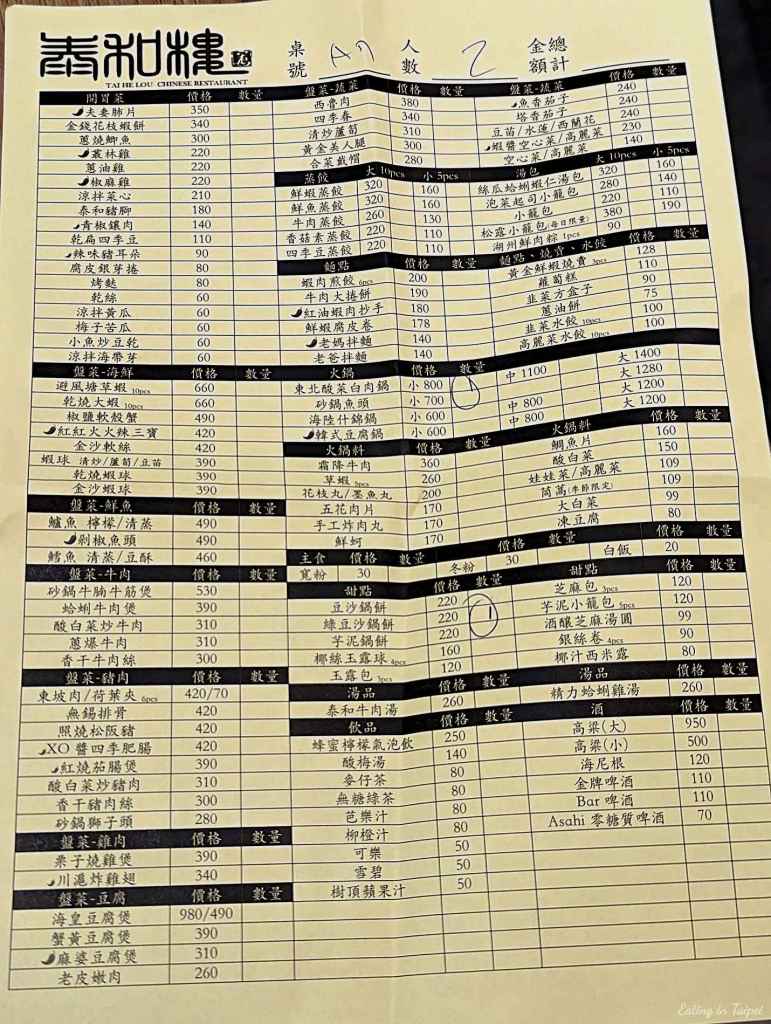 泰和樓
TAI HE LOU CHINESE RESTAURANT
桌號 A7 人數 2 金額總計
開胃菜 價格 數量
夫妻肺片 350
金錢花枝蝦餅 340
蔥燒鯽魚 300
叢林雞 220
蔥油雞 220
椒麻雞 220
涼拌菜心 210
泰和豬腳 180
青椒鑲肉 140
乾扁四季豆 110
辣味豬耳朵 90
腐皮銀芽捲 80
烤麩 80
乾絲 60
涼拌黃瓜 60
梅子苦瓜 60
小魚炒豆乾 60
涼拌海帶芽 60
盤菜-海鮮 價格 數量
避風塘草蝦 10pcs 660
乾燒大蝦 10pcs 660
椒鹽軟殼蟹 490
紅紅火火辣三寶 420
金沙軟絲 420
蝦球 清炒/蘆筍/豆苗 390
乾燒蝦球 390
金沙蝦球 390
盤菜-鮮魚 價格 數量
鱸魚 檸檬/清蒸 490
剁椒魚頭 490
鱈魚 清蒸/豆酥 460
盤菜-牛肉 價格 數量
砂鍋牛腩牛筋煲 530
蛤蜊牛肉煲 390
酸白菜炒牛肉 310
蔥爆牛肉 310
香干牛肉絲 300
盤菜-豬肉 價格 數量
東坡肉/荷葉夾 6pcs 420/70
無錫排骨 420
照燒松阪豬 420
XO 醬四季肥腸 420
紅燒茄腸煲 390
酸白菜炒豬肉 310
香干豬肉絲 300
砂鍋獅子頭 280
盤菜-雞肉 價格 數量
栗子燒雞煲 390
川滬炸雞翅 340
盤菜-豆腐 價格 數量
海皇豆腐煲 980/490
蟹黃豆腐煲 390
麻婆豆腐煲 310
老皮嫩肉 260
盤菜-蔬菜 價格 數量
西魯肉 380
四季春 340
清炒蘆筍 310
黃金美人腿 300
合菜戴帽 280
蒸餃 大 10pcs 小 5pcs
鮮蝦蒸餃 320 160
鮮魚蒸餃 320 160
牛肉蒸餃 260 130
香菇素蒸餃 220 110
四季豆蒸餃 220 110
麵點 價格 數量
蝦肉煎餃 6pcs 200
牛肉大捲餅 190
紅油蝦肉抄手 180
鮮蝦腐皮卷 178
老媽拌麵 140
老爸拌麵 140
火鍋 價格 數量
東北酸菜白肉鍋 小 800 中 1100 大 1400
砂鍋魚頭 小 700 大 1280
海陸什錦鍋 小 600 中 800 大 1200
韓式豆腐鍋 小 600 中 800 大 1200
火鍋料 價格 數量
霜降牛肉 360
草蝦 5pcs 260
花枝丸/墨魚丸 200
五花肉片 170
手工炸肉丸 170
鮮蚵 170
主食 價格 數量
寬粉 30
甜點 價格 數量
豆沙鍋餅 220
綠豆沙鍋餅 220 1
芋泥鍋餅 220
椰絲玉露球 4pcs 160
玉露包 3pcs 120
湯品 價格 數量
泰和牛肉湯 260
飲品 價格 數量
蜂蜜檸檬氣泡飲 250
酸梅湯 140
麥仔茶 80
無糖綠茶 80
芭樂汁 80
柳橙汁 80
可樂 50
雪碧 50
樹頂蘋果汁 50
盤菜-蔬菜 價格 數量
魚香茄子 240
塔香茄子 240
豆苗/水蓮/西蘭花 240
蝦醬空心菜/高麗菜 230
空心菜/高麗菜 140
湯包 大 10pcs 小 5pcs
絲瓜蛤蜊蝦仁湯包 320 160
泡菜起司小籠包 280 140
小籠包 220 110
松露小籠包(每日限量) 380 190
湖州鮮肉粽 1pcs 90
麵點、燒賣、水餃 價格 數量
黃金鮮蝦燒賣 3pcs 128
蘿蔔糕 110
韭菜方盒子 90
蔥油餅 75
韭菜水餃 10pcs 100
高麗菜水餃 10pcs 100
火鍋料 價格 數量
鯛魚片 160
酸白菜 150
娃娃菜/高麗菜 109
茼蒿(季節限定) 109
大白菜 99
凍豆腐 80
價格 數量 價格 數量
冬粉 30 白飯 20
甜點 價格 數量
芝麻包 3pcs 120
芋泥小籠包 5pcs 120
酒釀芝麻湯圓 99
銀絲卷 4pcs 90
椰汁西米露 80
湯品 價格 數量
精力蛤蜊雞湯 260
酒 價格 數量
高粱(大) 950
高粱(小) 500
海尼根 120
金牌啤酒 110
Bar 啤酒 110
Asahi 零糖質啤酒 70
Eating in Taipei